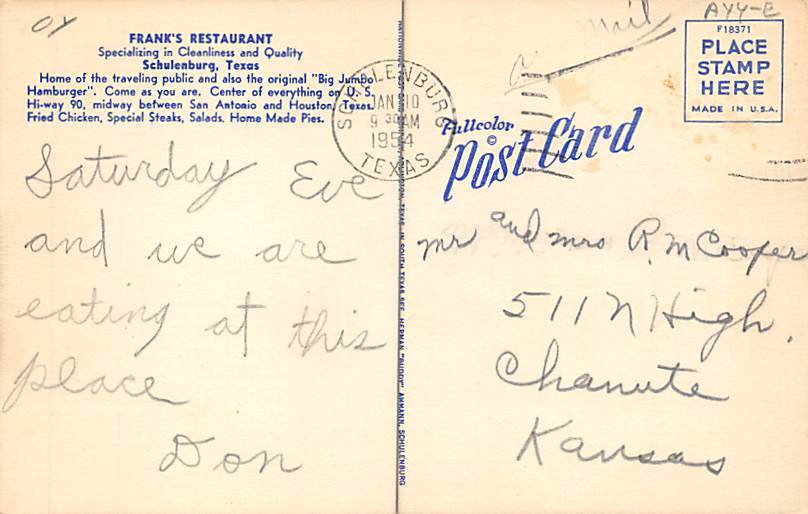 OY
FRANK'S RESTAURANT
Specializing in Cleanliness and Quality
Schulenburg, Texas
Home of the traveling public and also the original "Big Jumbo
Hamburger". Come as you are. Center of everything on U. S.
Hi-way 90, midway between San Antonio and Houston, Texas.
Fried Chicken, Special Steaks, Salads, Home Made Pies.
Saturday Eve
and we are
eating at this
place
Don
SCHULENBURG
JAN 10
9 30 AM
1954
TEXAS
IN SOUTH TEXAS SEE HERMAN "BUDDY" AMMANN, SCHULENBURG
Mail
AYY-E
F18371
PLACE
STAMP
HERE
MADE IN U.S.A.
Fullcolor
©
Post Card
Mr and Mrs R. M Cooper
511 N High,
Chanute
Kansas